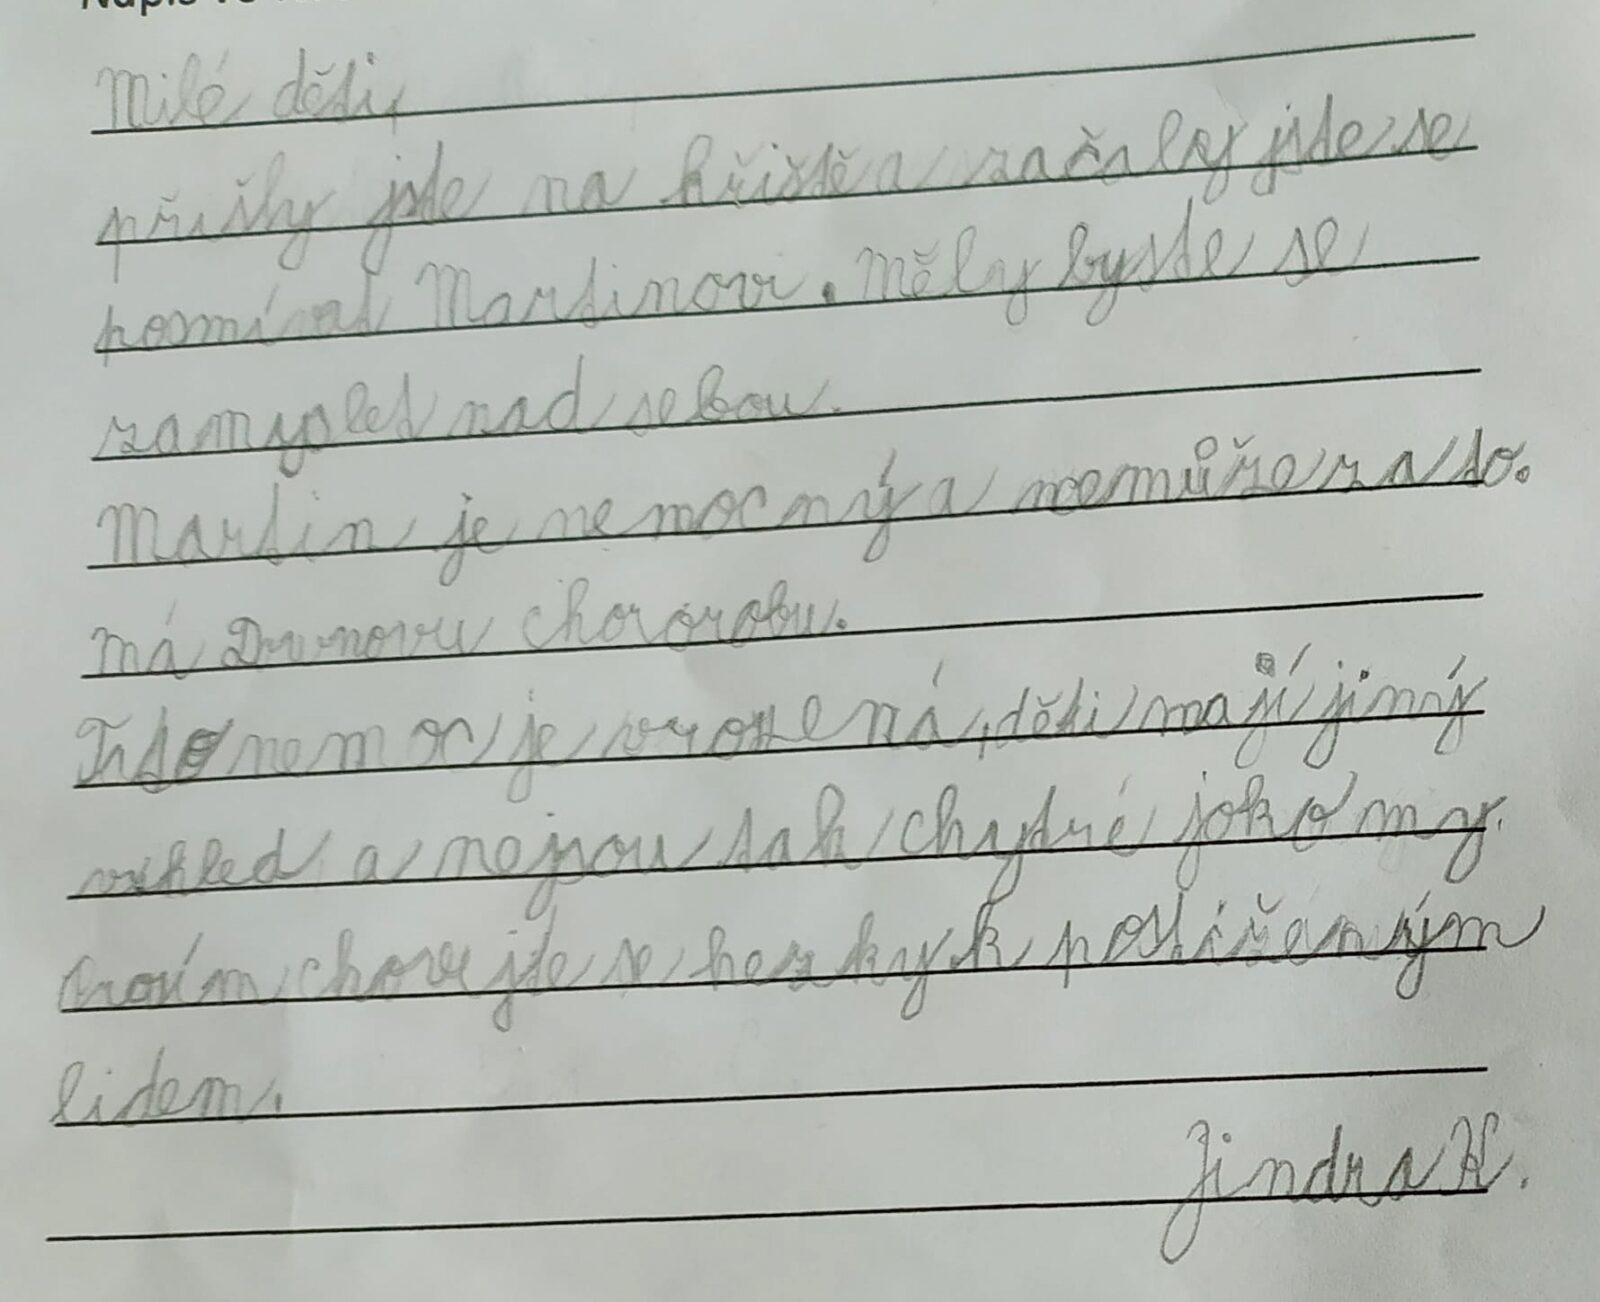 Milé děti,
přišly jste na hřiště a začaly jste se
posmívat Martinovi. Měly byste se
zamyslet nad sebou.
Martin je nemocný a nemůže za to.
má Dwnovu chororobu.
Tato nemoc je vrozená, děti mají jiný
vzhled a nejsou tak chytré joko my.
Prosím chovejte se hezky k postiženým
lidem.
Jindra K.